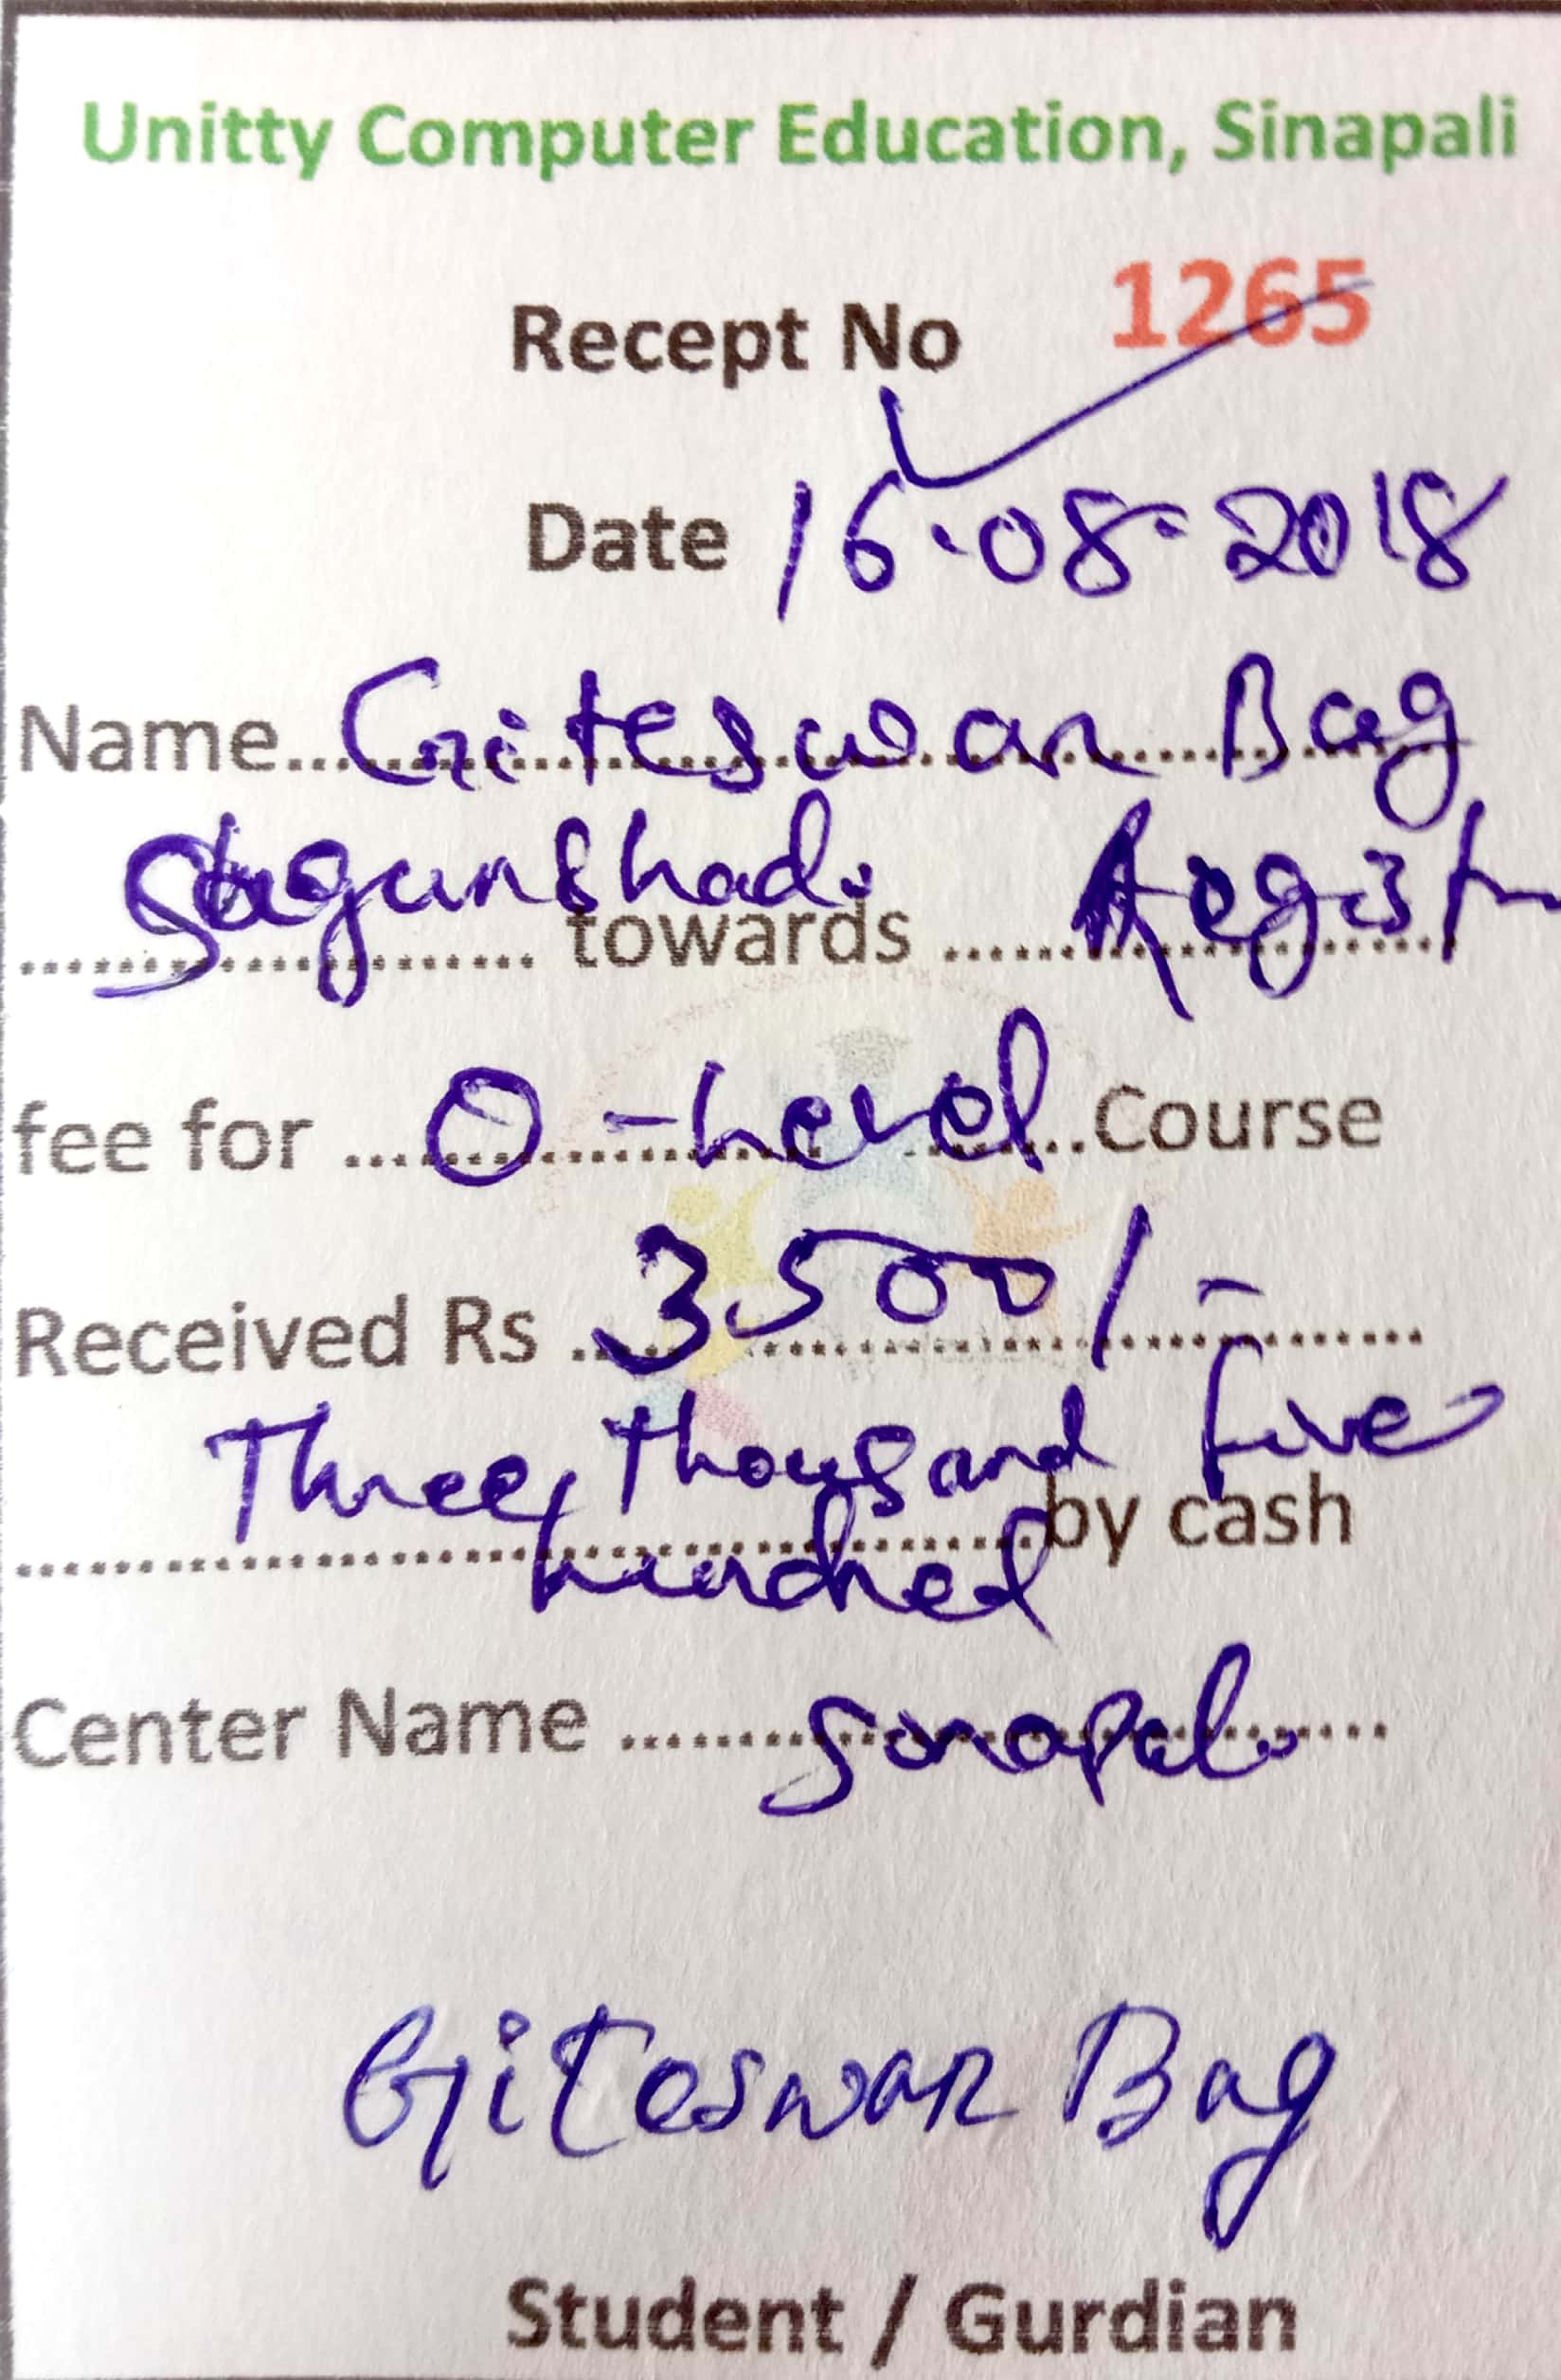 Unitty Computer Education, Sinapali
Recept No 1265
Date 16.08.2018
Name Giteswar Bag
Sagunbhadi towards Registr
fee for O-Level Course
Received Rs 3500/-
Three thousand five
hundred by cash
Center Name Sinapali
Giteswar Bag
Student / Gurdian